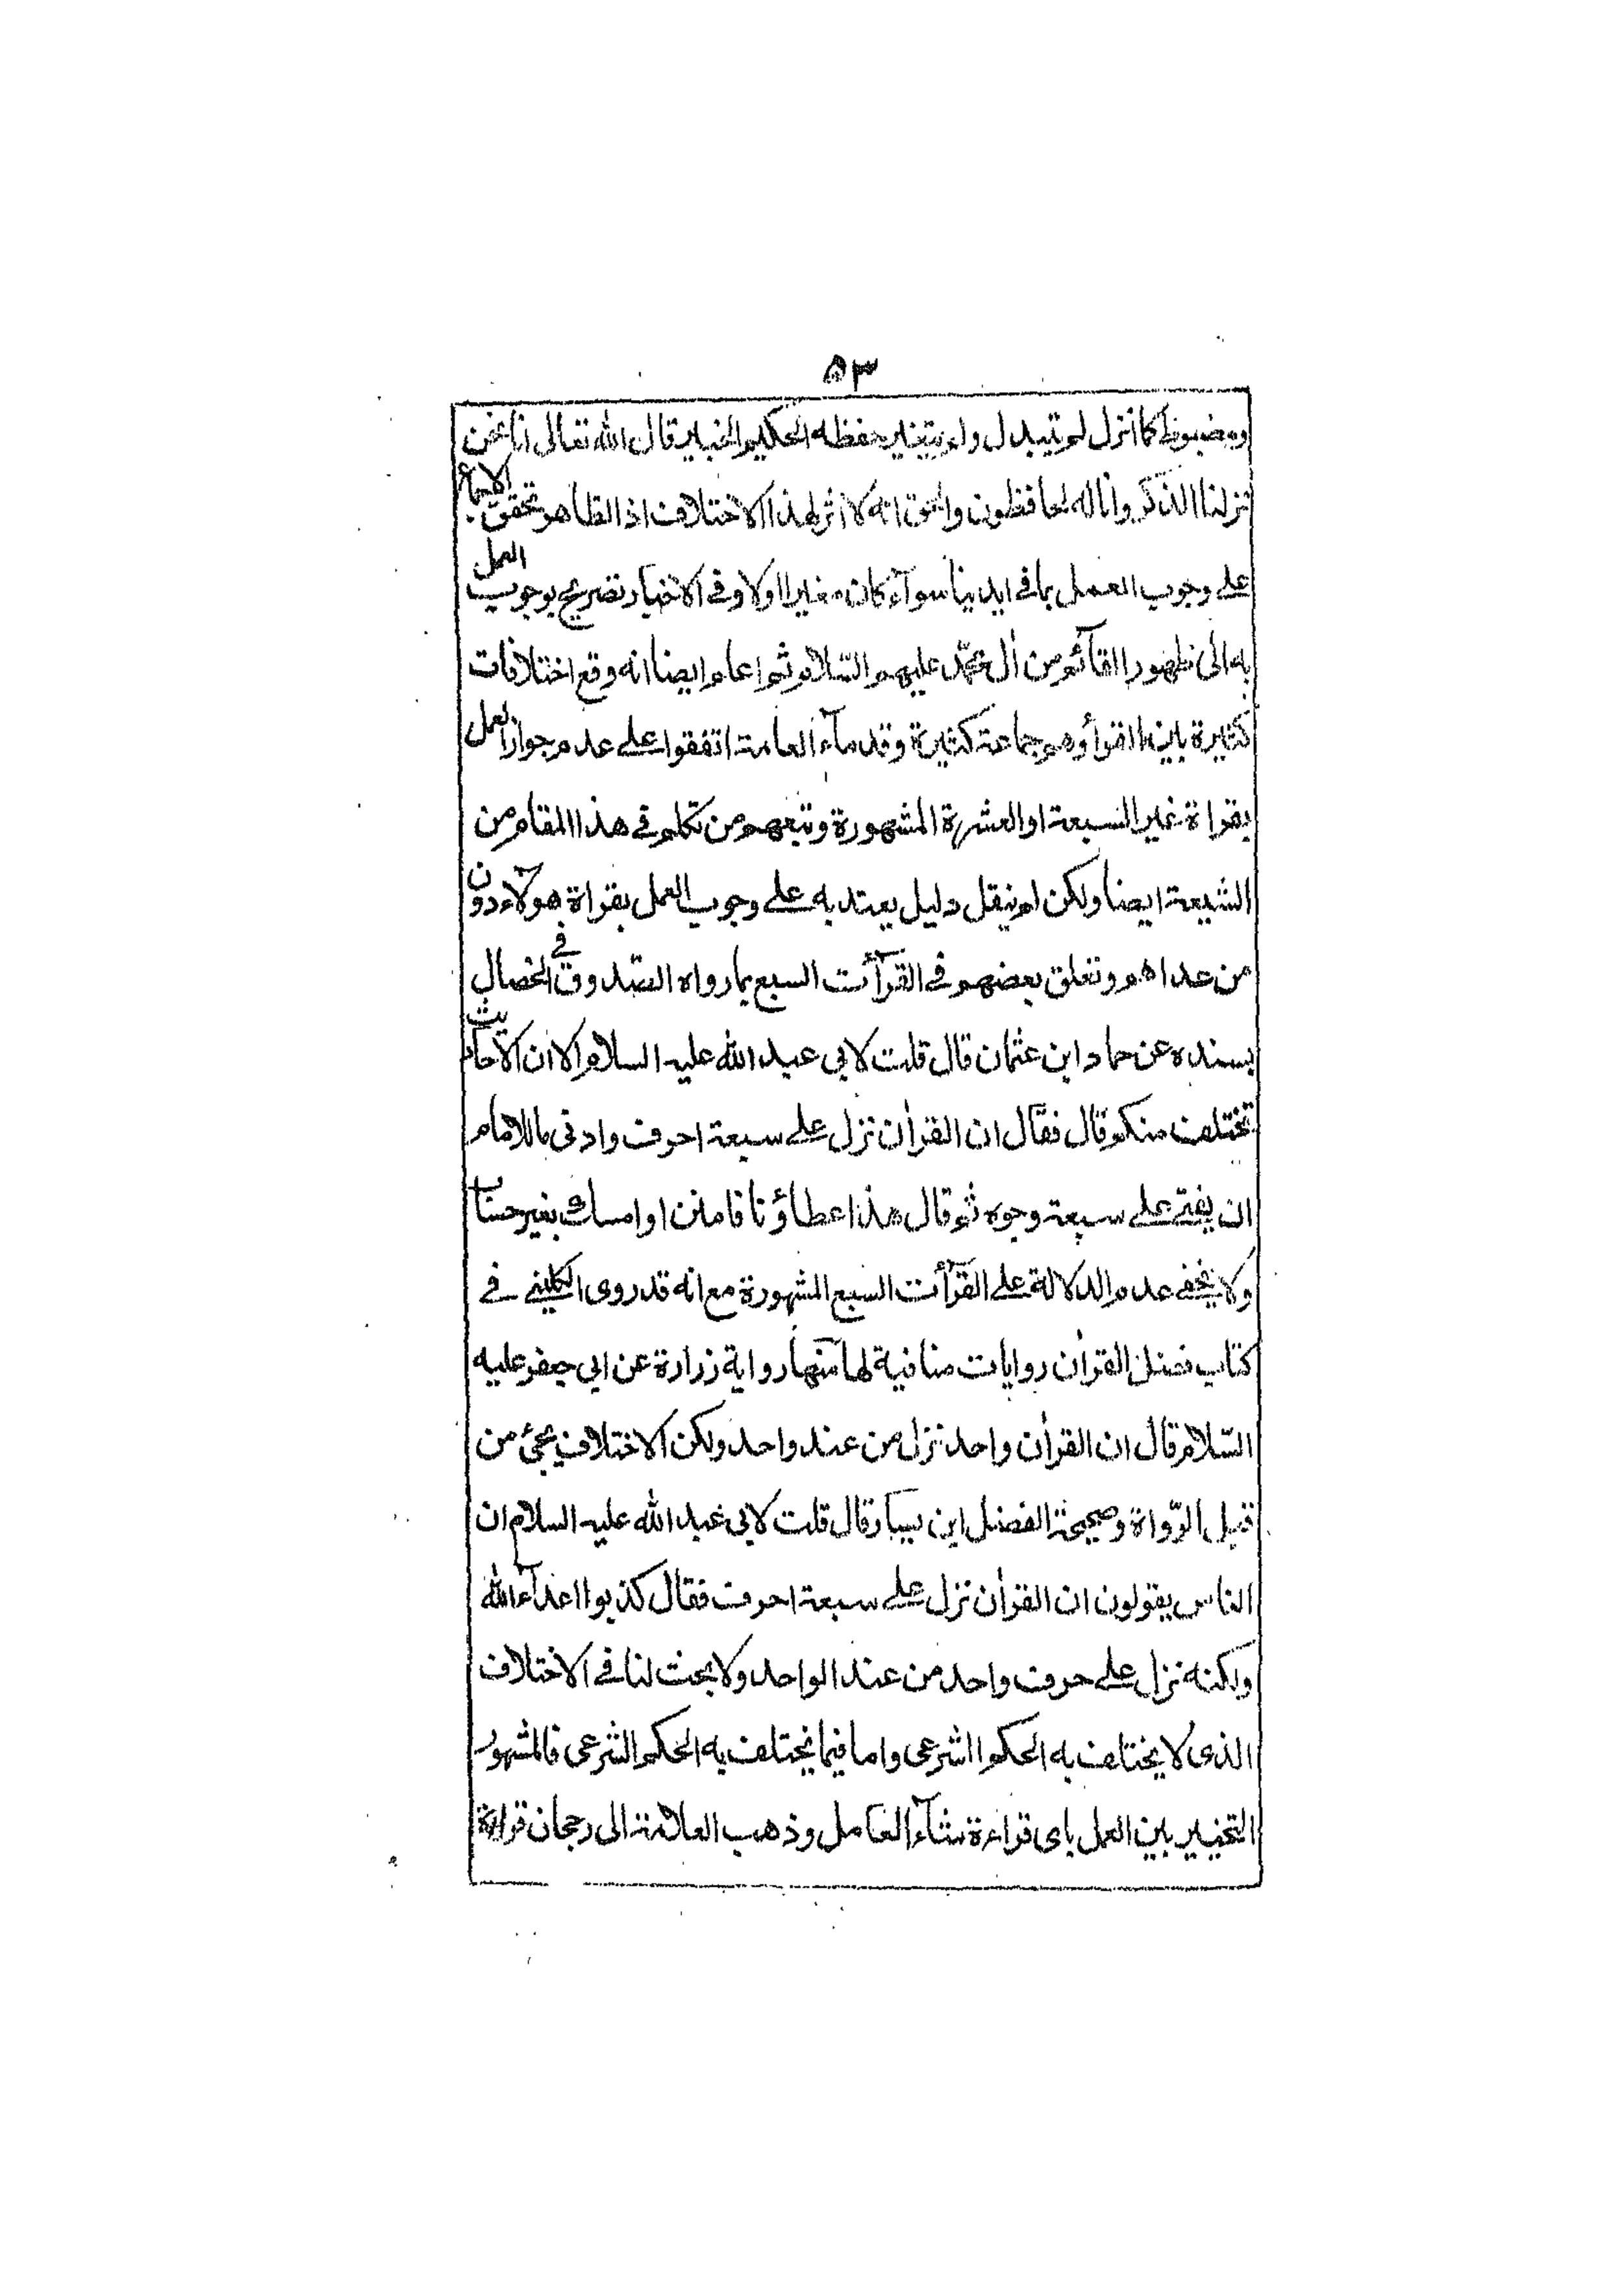 ۵۳
ومضبوط كما انزل لم يتبدل ولم يتغير حفظه الحكيم الخبير قال الله تعالى انا نحن
نزلنا الذكر وانا له لحافظون والحق انه لا اثر لهذا الاختلاف اذ الظاهر تحقق الاجماع
على وجوب العمل بما فى ايدينا سوآء كان مغيرا اولا وفى الاخبار تصريح بوجوب العمل
به الى ظهور القآئم من اٰل محمّد عليهم السّلام ثم اعلم ايضا انه وقع اختلافات
كثيرة بين القرأ وهم جماعة كثيرة وقدمآء العامة اتفقوا على عدم جواز العمل
بقراة غير السبعة او العشرة المشهورة وتبعهم من تكلم فى هذا المقام من
الشيعة ايضا ولكن لم ينقل دليل يعتد به على وجوب العمل بقراة هولآء دون
من عداهم وتعلق بعضهم فى القرآئت السبع بما رواه الصّدوق فى الخصال
بسنده عن حماد ابن عثمان قال قلت لابى عبد الله عليه السلام الا ان الاحاديث
تختلف منكم قال فقال ان القراٰن نزل على سبعة احرف وادنى ما للامام
ان يفتى على سبعة وجوه ثم قال هذا عطاؤنا فامنن او امسك بغير حساب
ولا يخفى عدم الدلالة على القرآئت السبع المشهورة مع انه قد روى الكلينى فى
كتاب فضل القراٰن روايات منافية لها منها رواية زرارة عن ابى جعفر عليه
السّلام قال ان القراٰن واحد نزل من عند واحد ولكن الاختلاف يجئ من
قبل الرّواة وصحيحة الفضل ابن يسار قال قلت لابى عبد الله عليه السلام ان
الناس يقولون ان القراٰن نزل على سبعة احرف فقال كذبوا اعدآء الله
ولكنه نزل على حرف واحد من عند الواحد ولا بحث لنا فى الاختلاف
الذى لا يختلف به الحكم الشرعى واما فيما يختلف به الحكم الشرعى فالمشهور
التخيير بين العمل باى قراءة شآء العامل وذهب العلامة الى رجحان قراءة